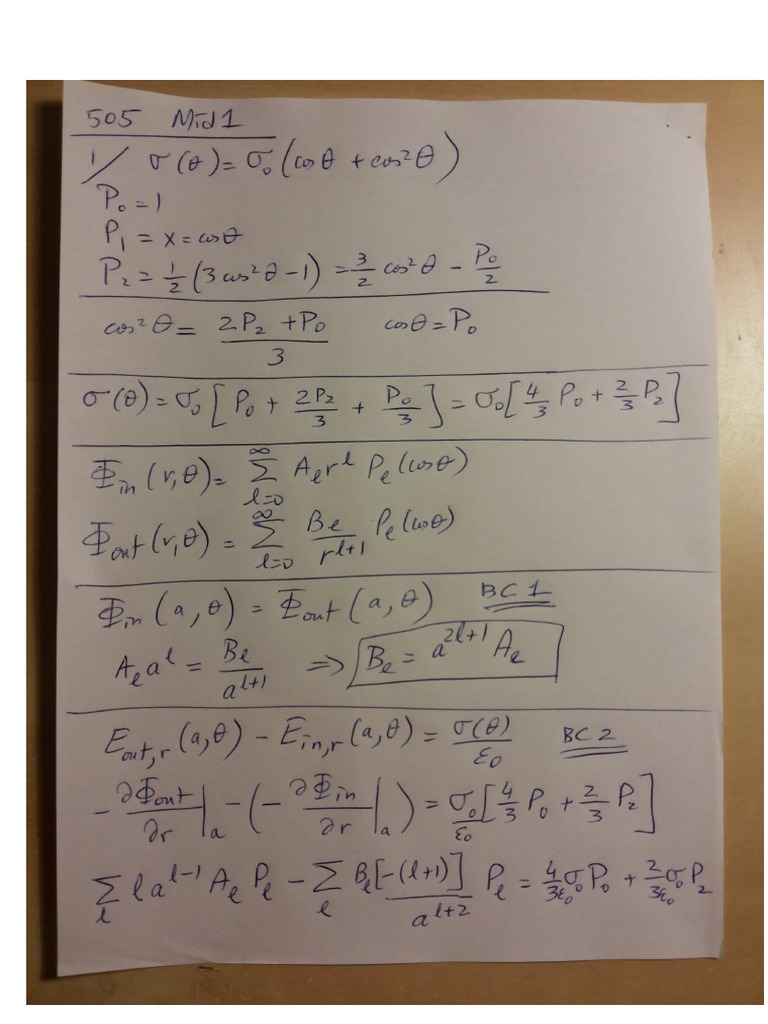 505 Mid1
1/ σ(θ) = σ₀ (cosθ + cos²θ)
P₀ = 1
P₁ = x = cosθ
P₂ = 1/2 (3cos²θ - 1) = 3/2 cos²θ - P₀/2
cos²θ = (2P₂ + P₀)/3 cosθ = P₀
σ(θ) = σ₀ [P₀ + 2P₂/3 + P₀/3] = σ₀ [4/3 P₀ + 2/3 P₂]
Φ_in (r,θ) = ∑_{l=0}^{∞} A_l r^l P_l (cosθ)
Φ_out (r,θ) = ∑_{l=0}^{∞} B_l/r^{l+1} P_l (cosθ)
Φ_in (a,θ) = Φ_out (a,θ) BC1
A_l a^l = B_l/a^{l+1} ⇒ B_l = a^{2l+1} A_l
E_{out,r} (a,θ) - E_{in,r} (a,θ) = σ(θ)/ε₀ BC2
-∂Φ_out/∂r |_a - (-∂Φ_in/∂r |_a) = σ₀/ε₀ [4/3 P₀ + 2/3 P₂]
∑_l l a^{l-1} A_l P_l - ∑_l B_l [-(l+1)]/a^{l+2} P_l = 4/3ε₀ σ₀ P₀ + 2/3ε₀ σ₀ P₂